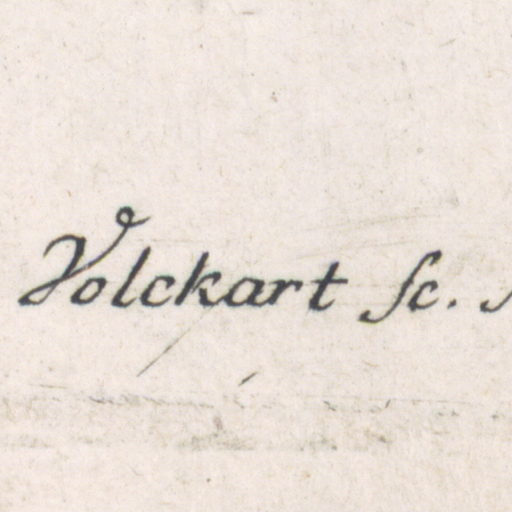 Volckart sc.